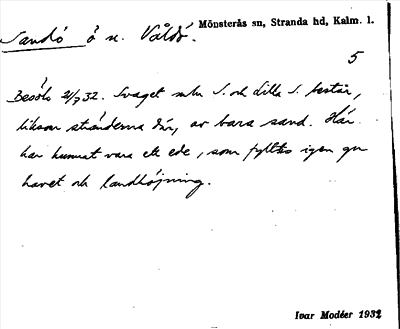 Sandö ö n. Våldö.
Mönsterås sn, Stranda hd, Kalm. l.
5
Besökt 21/7 32. Svaget mln S. och Lilla S. består,
liksom stränderna där, av bara sand. Här
har kunnat vara ett ede, som fyllts igen gm
havet och landhöjning.
Ivar Modéer 1932